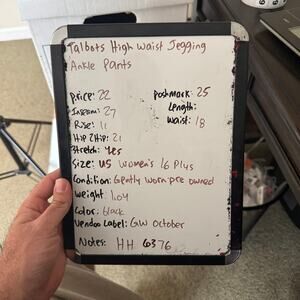 Talbots High Waist Jegging
Ankle Pants
price: 22
postmark: 25
Inseam: 27
Length:
Rise: 11
Waist: 18
Hip 2 Hip: 21
Stretch: Yes
Size: US Women's 16 Plus
Condition: Gently worn pre owned
Weight 1.04
Color: black
Vendoo Label: GW October
Notes: HH 6376